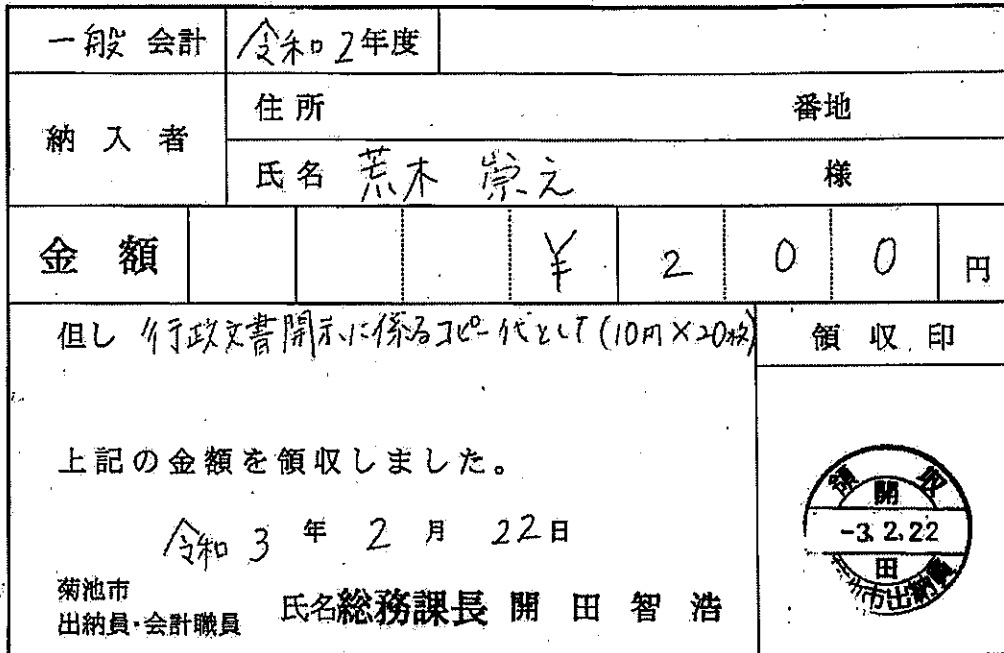 一般 会計 令和2年度
納入者 住所 番地
氏名 荒木 崇之 様
金額 ¥200円
但し 行政文書開示に係るコピー代として(10円×20枚)
領収印
上記の金額を領収しました。
令和3年2月22日
菊池市
出納員・会計職員 氏名 総務課長 開田智浩
領収
開
-3.2.22
田
市出納員